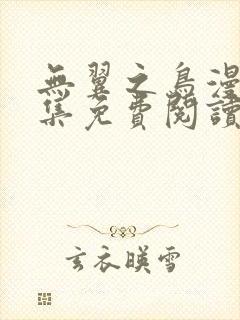 無翼之鳥漫
集免費閱讀
玄衣暎雪